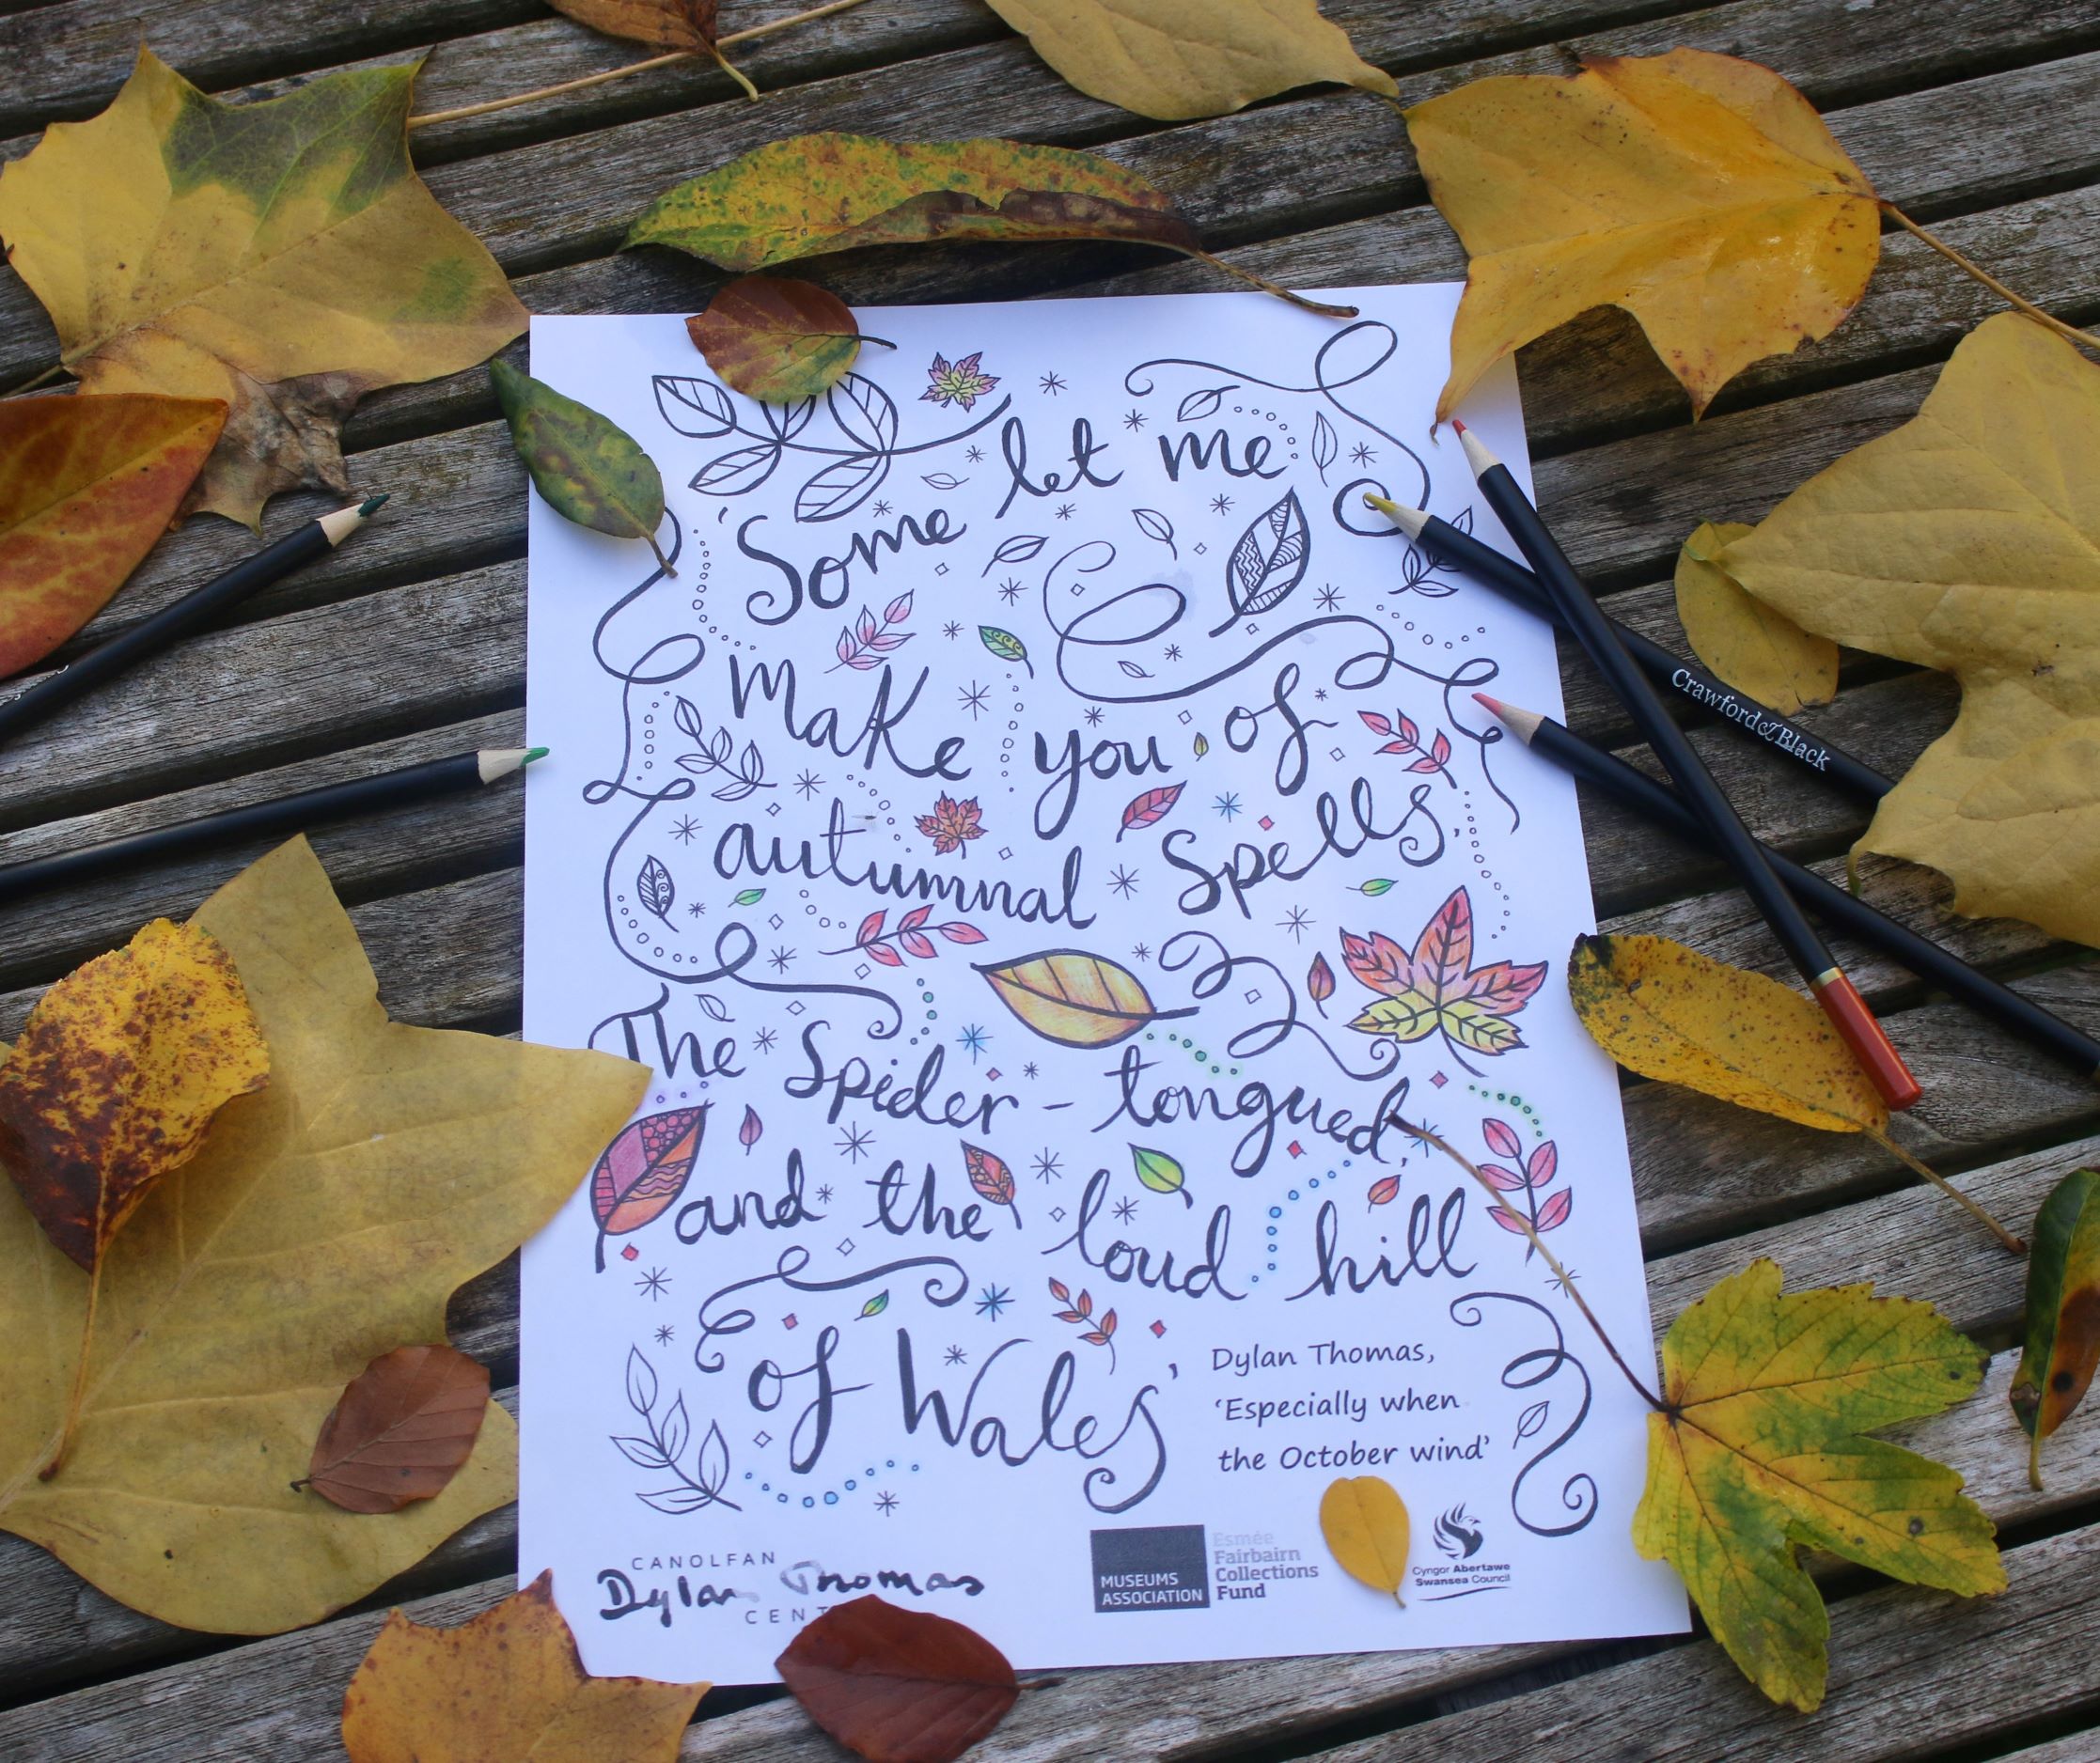 'Some let me
Make you of
autumnal Spells,
The Spider-tongued,
and the loud hill
of Wales'
Dylan Thomas,
'Especially when
the October wind'
CANOLFAN
Dylan Thomas
MUSEUMS
ASSOCIATION
Esmée
Fairbairn
Collections
Fund
Cyngor Abertawe
Swansea Council
Crawford&Black